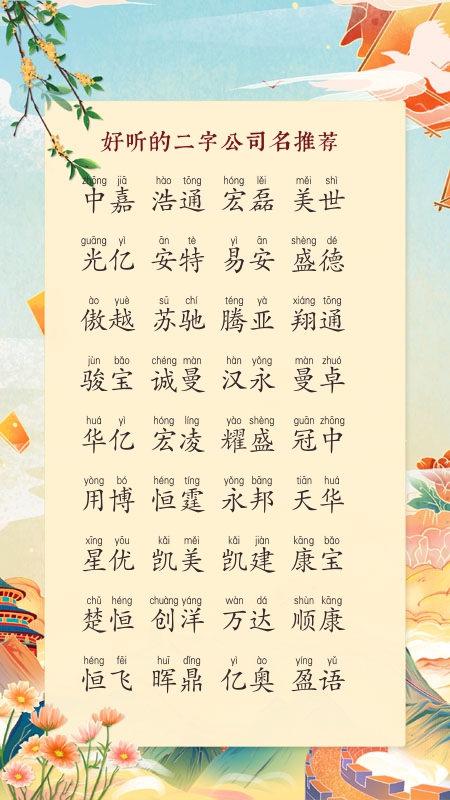 好听的二字公司名推荐
zhōng jiā hào tōng hóng lěi měi shì
中嘉 浩通 宏磊 美世
guāng yì ān tè yì ān shèng dé
光亿 安特 易安 盛德
ào yuè sū chí téng yà xiáng tōng
傲越 苏驰 腾亚 翔通
jùn bǎo chéng màn hàn yǒng màn zhuó
骏宝 诚曼 汉永 曼卓
huá yì hóng líng yào shèng guān zhōng
华亿 宏凌 耀盛 冠中
yòng bó héng tíng yǒng bāng tiān huá
用博 恒霆 永邦 天华
xīng yōu kǎi měi kǎi jiàn kāng bǎo
星优 凯美 凯建 康宝
chǔ héng chuàng yáng wàn dá shùn kāng
楚恒 创洋 万达 顺康
héng fēi huī dǐng yì ào yíng yǔ
恒飞 晖鼎 亿奥 盈语